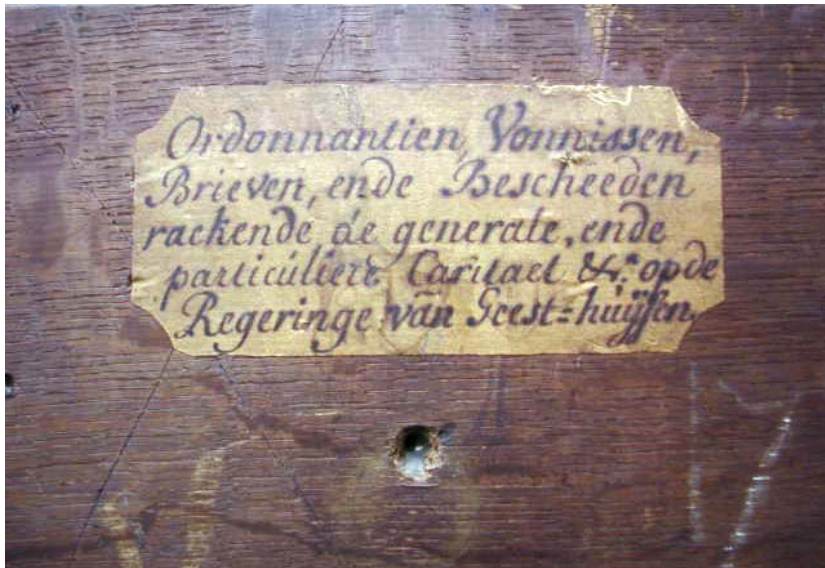 Ordonnantien, Vonnissen,
Brieven, ende Bescheeden
raekende de generale, ende
particúliere Caritaet &ra op de
Regeringe van Geest=huijsen